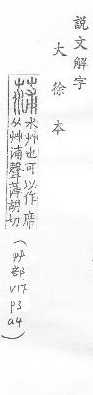 說文解字
大徐本
蒲 水艸也可以作席
从艸浦聲薄胡切
(艸部
V17
P3
a4)